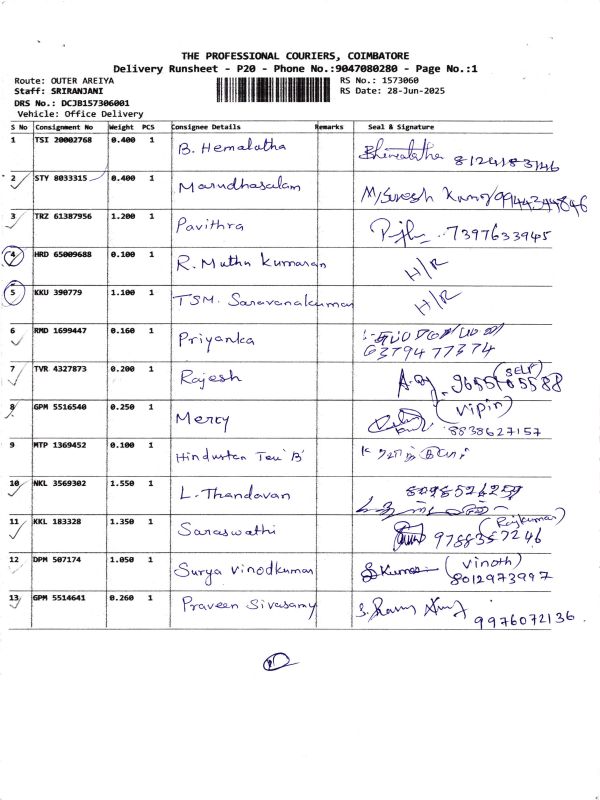 THE PROFESSIONAL COURIERS, COIMBATORE
Delivery Runsheet - P20 - Phone No.:9047080280 - Page No.:1
Route: OUTER AREIYA RS No.: 1573060
Staff: SRIRANJANI RS Date: 28-Jun-2025
DRS No.: DCJB157306001
Vehicle: Office Delivery
S No Consignment No Weight PCS Consignee Details Remarks Seal & Signature
1 TSI 20002768 0.400 1 B. Hemalatha 8124183746
2 STY 8033315 0.400 1 Marudhasalam M/Suresh Kumar 9944344846
3 TRZ 61387956 1.200 1 Pavithra 7397633945
4 HRD 65009688 0.100 1 R. Muthu Kumaran H/R
5 KKU 390779 1.100 1 TSM. Saravanakumar H/R
6 RMD 1699447 0.160 1 Priyanka
6379477374
7 TVR 4327873 0.200 1 Rajesh (SELF)
8 GPM 5516540 0.250 1 Mercy (Vipin)
8838627157
9 MTP 1369452 0.100 1 Hindustan
10 NKL 3569302 1.550 1 L. Thandavan
11 KKL 183328 1.350 1 Saraswathi (Rajkumar)
9788357246
12 DPM 507174 1.050 1 Surya Vinodkumar (Vinoth)
8012973997
13 GPM 5514641 0.260 1 Praveen Sivasamy
9976072136